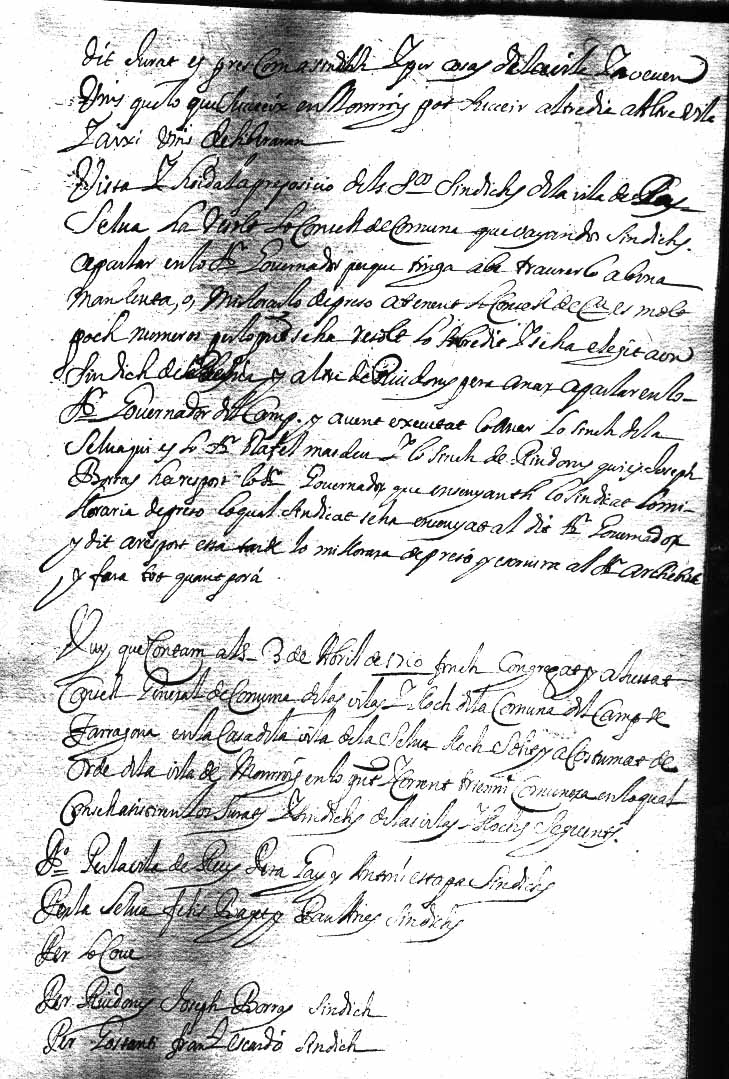 dit Jurat es pres Com a sindich y per casas de la vila
que lo que succeix en Monrroig pot succeir altre dia a altre vila
y axi deliberaran
Vista y hoida la proposicio dels Srs Sindichs de la vila de Reus
Selva ha resolt lo Consell de Comuna que vayan dos sindichs
a parlar en lo Sr Governador perque tinga a be traurerlo a bona
manlleuta, o, millorarlo de preso atenent lo Consell de Cna es molt
poch numeros per lo que se ha resolt lo sobredit y se ha elegit a un
Sindich de la Selva y altre de Riudoms pera anar a parlar en lo
Sr Governador del Camp. y avent executat lo anar lo sinch de la
Selva qui es lo Sr Rafel masdeu y lo sinch de Riudoms qui es Joseph
Borras ha respost lo Sr Governador que ensenyantli lo sindicat lo mi-
lloraria de preso lo qual sindicat se ha ensenyat al dit Sr Governador
y dit a respost esta tarde lo millorara de preso y escriura al Sr Archebisbe
y fara tot quant porá
Vuy, que Contam als 3 de Abril de 1710 fonch Congregat y adjuntat
Consell General de Comuna de las vilas y lloch de la Comuna del Camp de
Tarragona en la Casa de la vila de la Selva lloch solit y acostumat de
Orde de la vila de Monroig en lo pnt Corrent trienni Comunera en lo qual
Consell assistiren los Jurats y Sindichs de las vilas y llochs seguents.
Po Per la vila de Reus Pera Gay y Antoni estapa Sindichs
Per la Selva felis Baget y Pau Aries Sindichs
Per lo Cove
Per Riudoms Joseph Borras Sindich
Per Costanti Franch Escardó Sindich